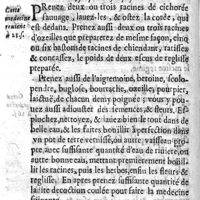 Prenez deux, ou trois racines de cichorée
sauuage, lauez-les, & ostez la cordé, qui
est dedans. Prenez aussi deux ou trois racines
d'ozeilles que preparerez de mesme façon, cinq
ou six bastons de racines de chiendant, ratisses
& concassez, le poids de deux escus de reglisse
preparée.
Prenez aussi de l'aigremoine, betoine, scolo-
pendre, buglose, bourrache, ozeilles, pourpier,
laictuë, de chacun demy poignée; vous y pou-
uez aussi adiouster des semences & fleurs. Es-
pluchez, nettoyez, & lauez bien le tout dans
belle eau, & les faites bouillir à perfection dans
vn pot de terre vernissé, ou autre vaisseau pro-
pre auec suffisante quantité d'eau de riuiere, ou
autre bonne eau, mettans premierement bouillir
les racines, puis les herbes, enfin les fleurs &
reglisse. En apres prenez suffisante quantité de
ladite decoction coulée pour faire la medecine
Cette
medecine
reuient
à 12 s.